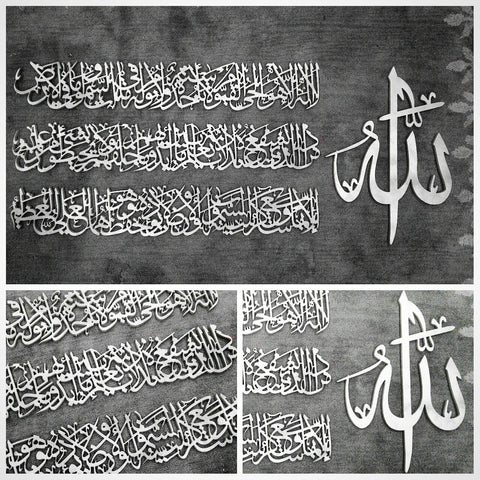 الله
الله لا إله إلا هو الحي القيوم لا تأخذه سنة ولا نوم له ما في السموات وما في الأرض
من ذا الذي يشفع عنده إلا بإذنه يعلم ما بين أيديهم وما خلفهم ولا يحيطون بشيء من علمه
إلا بما شاء وسع كرسيه السموات والأرض ولا يؤده حفظهما وهو العلي العظيم
الله